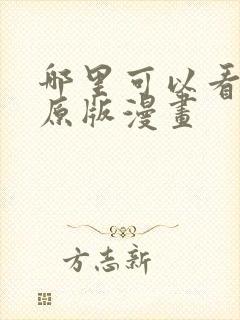 哪里可以看
原版漫畫
方志新